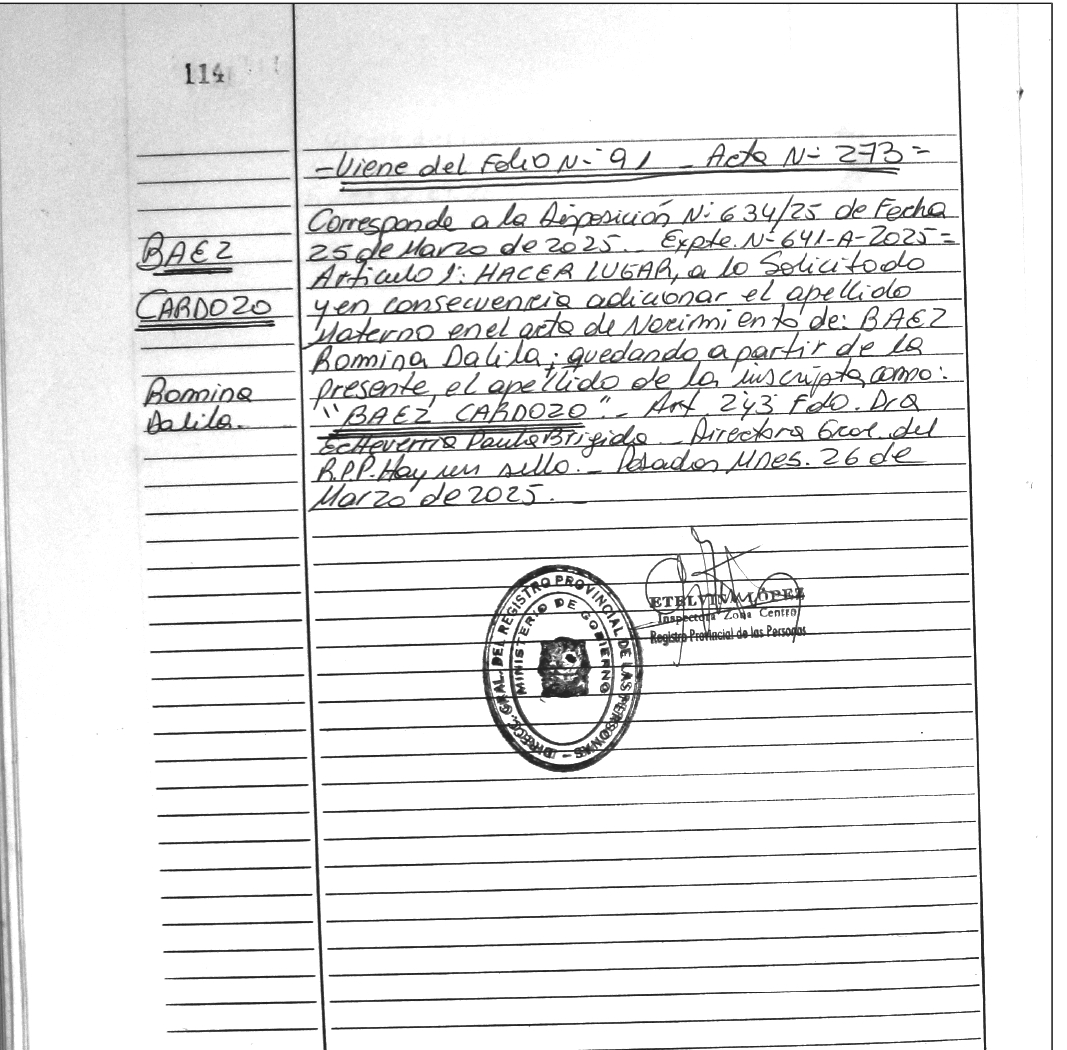 114
-Viene del Folio N-º 91 - Acta N-º 273=
Corresponde a la Disposición Nº 634/25 de Fecha
25 de Marzo de 2025. Expte. N-º 641-A-2025=
Articulo 1º: HACER LUGAR, a lo Solicitado
y en consecuencia adicionar el apellido
Materno en el acta de Nacimiento de: BAEZ
Romina Dalila; quedando a partir de la
presente, el apellido de la inscripta, como:
"BAEZ CARDOZO". Art 2 y 3 Fdo. Dra
Echeverria Paula Brigida - Directora Gral. del
R.P.P. Hay un sello. - Posadas Mnes. 26 de
Marzo de 2025.
BAEZ
CARDOZO
Romina
Dalila.
DIRECC. GRAL. DEL REGISTRO PROVINCIAL DE LAS PERSONAS -
MINISTERIO DE GOBIERNO
ETELVINA LOPEZ
Inspectora Zona Centro
Registro Provincial de las Personas